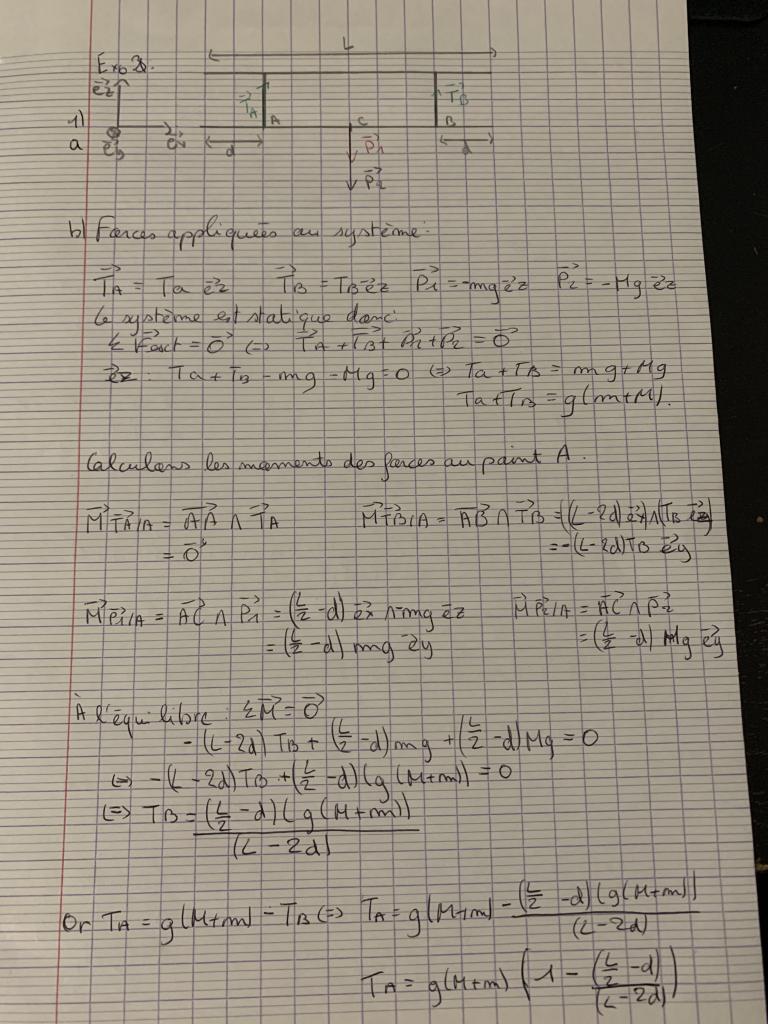 L
Exo 2.
$\vec{e_z}$
$\vec{T_A}$ $\vec{T_B}$
1) A C B
a $\vec{e_y}$ $\vec{e_x}$ d $\vec{P_1}$ d
$\vec{P_2}$
b) Forces appliquées au système :
$\vec{T_A} = T_a \vec{e_z}$ $\vec{T_B} = T_B \vec{e_z}$ $\vec{P_1} = -mg \vec{e_z}$ $\vec{P_2} = -Mg \vec{e_z}$
Le système est statique donc
$\Sigma \vec{F_{ext}} = \vec{0}$ (=) $\vec{T_A} + \vec{T_B} + \vec{P_1} + \vec{P_2} = \vec{0}$
$\vec{e_z}$ : $T_a + T_B - mg - Mg = 0$ (=) $T_a + T_B = mg + Mg$
$T_a + T_B = g(m+M)$.
Calculons les moments des forces au point A.
$\vec{M}_{\vec{T_A}/A} = \vec{AA} \wedge \vec{T_A}$ $\vec{M}_{\vec{T_B}/A} = \vec{AB} \wedge \vec{T_B} = ((L-2d) \vec{e_x}) \wedge (T_B \vec{e_z})$
$= \vec{0}$ $= -(L-2d) T_B \vec{e_y}$
$\vec{M}_{\vec{P_1}/A} = \vec{AC} \wedge \vec{P_1} = (\frac{L}{2} - d) \vec{e_x} \wedge -mg \vec{e_z}$ $\vec{M}_{\vec{P_2}/A} = \vec{AC} \wedge \vec{P_2}$
$= (\frac{L}{2} - d) mg \vec{e_y}$ $= (\frac{L}{2} - d) Mg \vec{e_y}$
À l'équilibre : $\Sigma \vec{M} = \vec{0}$
$-(L-2d) T_B + (\frac{L}{2} - d) mg + (\frac{L}{2} - d) Mg = 0$
(=) $-(L-2d) T_B + (\frac{L}{2} - d)(g(M+m)) = 0$
(=) $T_B = \frac{(\frac{L}{2} - d)(g(M+m))}{(L-2d)}$
Or $T_A = g(M+m) - T_B$ (=) $T_A = g(M+m) - \frac{(\frac{L}{2} - d)(g(M+m))}{(L-2d)}$
$T_A = g(M+m) \left(1 - \frac{(\frac{L}{2} - d)}{(L-2d)}\right)$